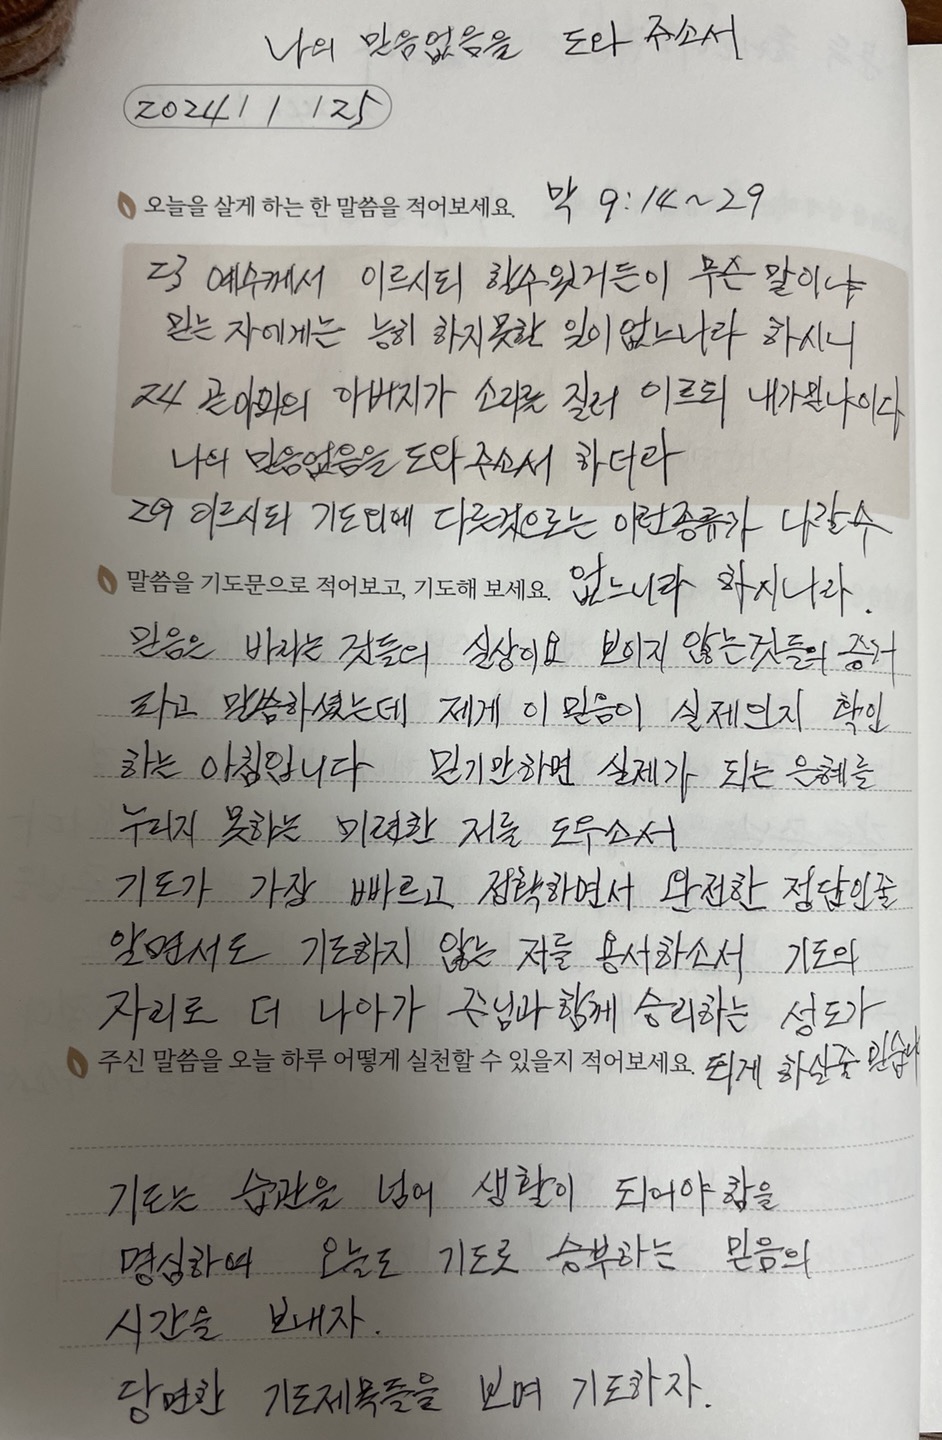 나의 믿음없음을 도와 주소서
2024 / 1 / 25
오늘을 살게 하는 한 말씀을 적어보세요. 막 9:14~29
23 예수께서 이르시되 할수있거든이 무슨 말이냐
믿는 자에게는 능히 하지못할 일이 없느니라 하시니
24 곧 아이의 아버지가 소리를 질러 이르되 내가 믿나이다
나의 믿음없음을 도와 주소서 하더라
29 이르시되 기도외에 다른것으로는 이런종류가 나갈수
말씀을 기도문으로 적어보고, 기도해 보세요. 없느니라 하시니라.
믿음은 바라는 것들의 실상이요 보이지 않는것들의 증거
라고 말씀하셨는데 제게 이 믿음이 실제인지 확인
하는 아침입니다 믿기만하면 실제가 되는 은혜를
누리지 못하는 미련한 저를 도우소서
기도가 가장 빠르고 정확하면서 완전한 정답인줄
알면서도 기도하지 않는 저를 용서하소서 기도의
자리로 더 나아가 주님과 함께 승리하는 성도가
주신 말씀을 오늘 하루 어떻게 실천할 수 있을지 적어보세요. 되게 하실줄 믿습니다
기도는 습관을 넘어 생활이 되어야 함을
명심하여 오늘도 기도로 승부하는 믿음의
시간을 보내자.
당면한 기도제목들을 보며 기도하자.